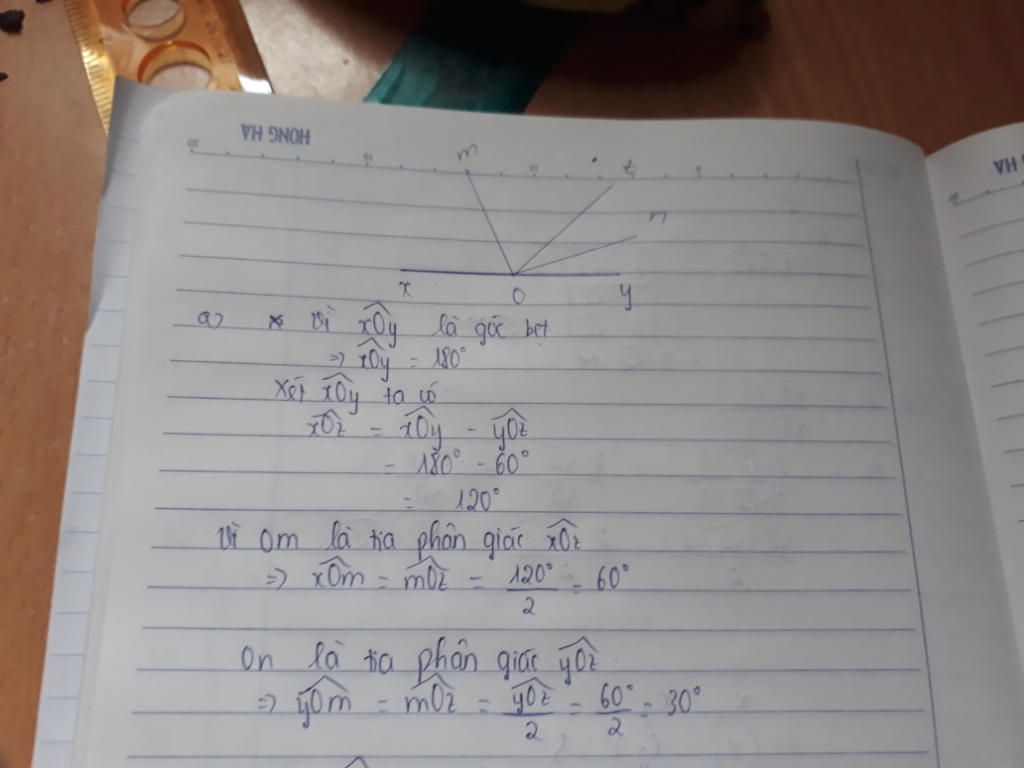 HONG HA
m z
n
x O y
a) Vì xOy là góc bẹt
⇒ xOy = 180°
Xét xOy ta có:
xOz = xOy - yOz
= 180° - 60°
= 120°
Vì Om là tia phân giác xOz
⇒ xOm = mOz = 120°/2 = 60°
On là tia phân giác yOz
⇒ yOm = mOz = yOz/2 = 60°/2 = 30°